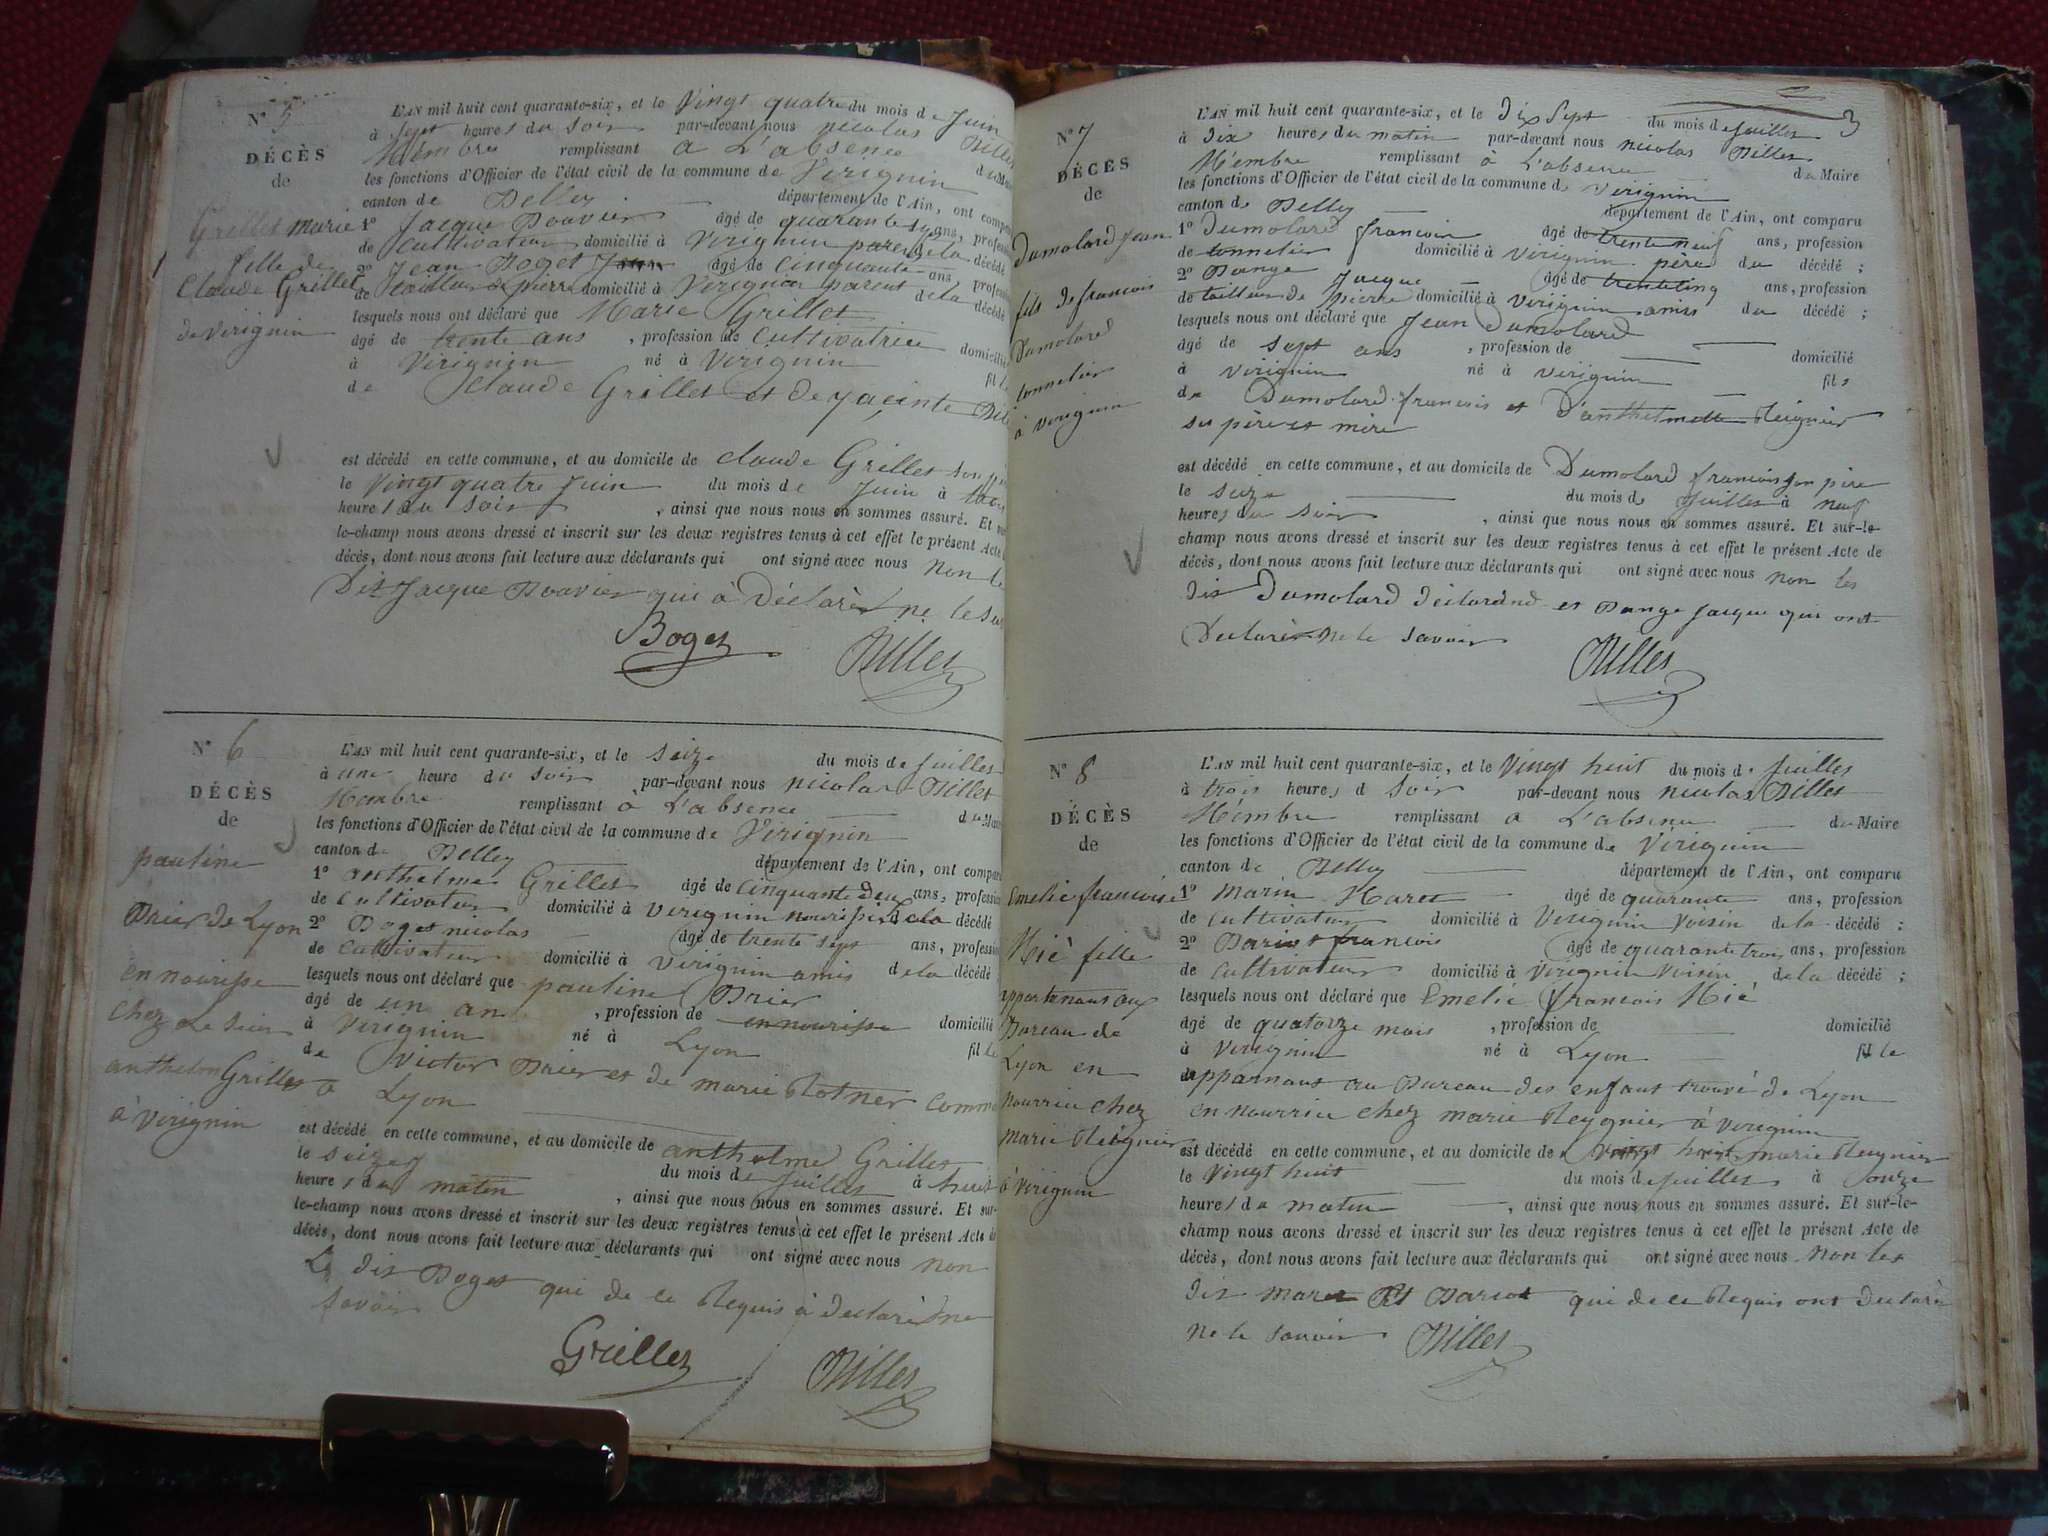 N° 5
DÉCÈS
de
Grillet marie
fille de
Claude Grillet
de virignin
L'AN mil huit cent quarante-six, et le Vingt quatre du mois de Juin
à sept heures du soir par-devant nous nicolas Billet
Membre remplissant a L'absence du Maire
les fonctions d'Officier de l'état civil de la commune de Virignin
canton de Belley département de l'Ain, ont comparu
1° Jacque Bouvier âgé de quarante ans, profession
de Cultivateur domicilié à Virignin parent de la décédé
2° Jean Boget âgé de cinquante ans profession
de tailleur de pierre domicilié à Virignin parent de la décédé
lesquels nous ont déclaré que Marie Grillet
âgé de trente ans, profession de Cultivatrice domicilié
à Virignin né à Virignin fille
de Claude Grillet et de yacinte
est décédé en cette commune, et au domicile de claude Grillet son
le Vingt quatre Juin du mois de Juin à
heures du soir, ainsi que nous nous en sommes assuré. Et sur
le-champ nous avons dressé et inscrit sur les deux registres tenus à cet effet le présent Acte
décès, dont nous avons fait lecture aux déclarants qui ont signé avec nous non le
Dit Jacque Bouvier qui à Déclaré ne le
Boget Billet
N° 6
DÉCÈS
de
pauline
Brier de Lyon
en nourisse
chez Le sieur
anthelme Grillet
à Virignin
L'AN mil huit cent quarante-six, et le seize du mois de Juillet
à une heure du soir par-devant nous nicolas Billet
Membre remplissant à L'absence du Maire
les fonctions d'Officier de l'état civil de la commune de Virignin
canton de Belley département de l'Ain, ont comparu
1° anthelme Grillet âgé de cinquante deux ans, profession
de Cultivateur domicilié à Virignin nourissier de la décédé
2° Boget nicolas âgé de trente sept ans, profession
de Cultivateur domicilié à Virignin amis de la décédé
lesquels nous ont déclaré que pauline Brier
âgé de un an, profession de en nourisse domicilié
à Virignin né à Lyon fille
de Victor Brier et de marie Rotner
à Lyon
est décédé en cette commune, et au domicile de anthelme Grillet
le seize du mois de Juillet à
heures du matin, ainsi que nous nous en sommes assuré. Et sur-
le-champ nous avons dressé et inscrit sur les deux registres tenus à cet effet le présent Acte de
décès, dont nous avons fait lecture aux déclarants qui ont signé avec nous non
Le dit Boget qui de ce Requis à declaré ne
savoir
Grillet Billet
3
N° 7
DÉCÈS
de
Dumolard Jean
fils de francois
Dumolard
tonnelier
à virignin
L'AN mil huit cent quarante-six, et le Dix Sept du mois de Juillet
à Dix heures du matin par-devant nous nicolas Billet
Membre remplissant à L'absence du Maire
les fonctions d'Officier de l'état civil de la commune de Virignin
canton de Belley département de l'Ain, ont comparu
1° Dumolard francois âgé de trente neuf ans, profession
de tonnelier domicilié à Virignin père du décédé ;
2° Dange Jacque âgé de trente cinq ans, profession
de tailleur de pierre domicilié à Virignin amis du décédé ;
lesquels nous ont déclaré que Jean Dumolard
âgé de sept ans, profession de domicilié
à virignin né à virignin fils
de Dumolard francois et D'anthelmette Reignier
ses père et mère
est décédé en cette commune, et au domicile de Dumolard francois son père
le seize du mois de Juillet à neuf
heures du soir, ainsi que nous nous en sommes assuré. Et sur-le-
champ nous avons dressé et inscrit sur les deux registres tenus à cet effet le présent Acte de
décès, dont nous avons fait lecture aux déclarants qui ont signé avec nous non les
dit Dumolard et Dange Jacque qui ont
Declaré ne le savoir
Billet
N° 8
DÉCÈS
de
Emelie francoise
Hiè fille
appartenant aux
Bureau de
Lyon en
nourrice chez
marie Reignier
à Virignin
L'AN mil huit cent quarante-six, et le Vingt huit du mois de Juillet
à trois heures d soir par-devant nous nicolas Billet
Membre remplissant a L'absence du Maire
les fonctions d'Officier de l'état civil de la commune de Virignin
canton de Belley département de l'Ain, ont comparu
1° Marin Maret âgé de quarante ans, profession
de Cultivateur domicilié à Virignin Voisin de la décédé ;
2° Bariot francois âgé de quarante trois ans, profession
de Cultivateur domicilié à Virignin Voisin de la décédé ;
lesquels nous ont déclaré que Emelie francois Hiè
âgé de quatorze mois, profession de domicilié
à Virignin né à Lyon fille
au Bureau des enfant trouvé de Lyon
en nourrice chez marie Reygnier à Virignin
est décédé en cette commune, et au domicile de marie Reignier
le Vingt huit du mois de Juillet à onze
heures du matin, ainsi que nous nous en sommes assuré. Et sur-le-
champ nous avons dressé et inscrit sur les deux registres tenus à cet effet le présent Acte de
décès, dont nous avons fait lecture aux déclarants qui ont signé avec nous Non les
dit maret Et Bariot qui de ce Requis ont declaré
ne le savoir Billet